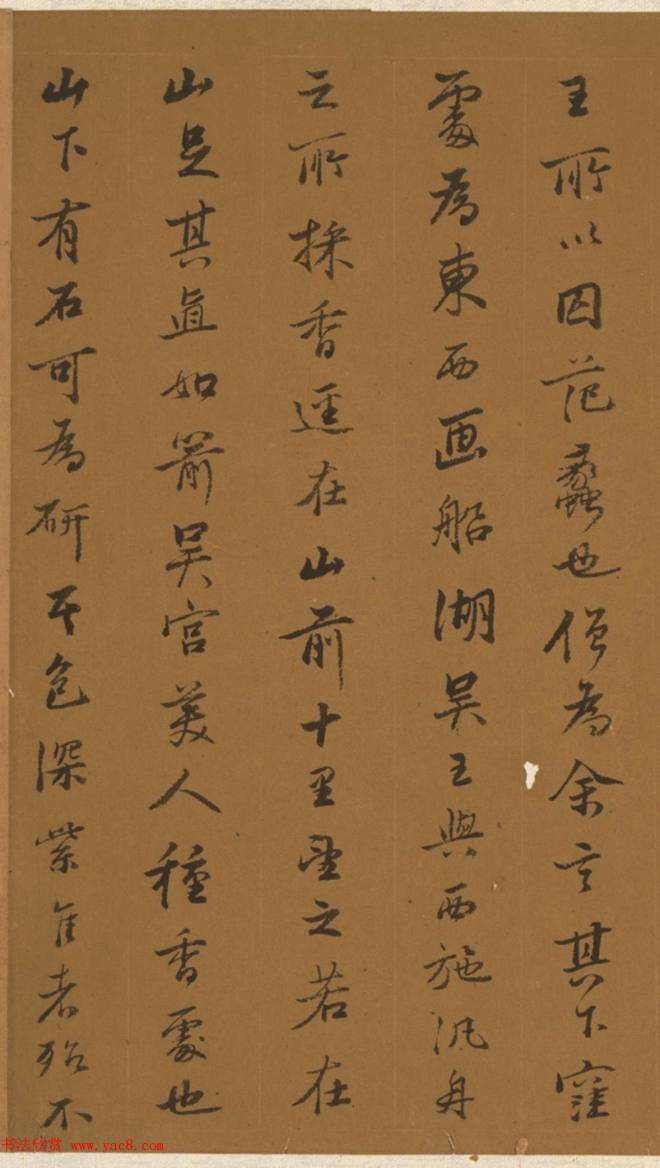 王所以囚范蠡也僧為余言其下窪
處為東西画船湖吴王與西施汎舟
之所採香逕在山前十里望之若在
山足其直如箭吴宮美人種香處也
山下有石可為研其色深紫佳者殆不
书法欣赏 www.yac8.com